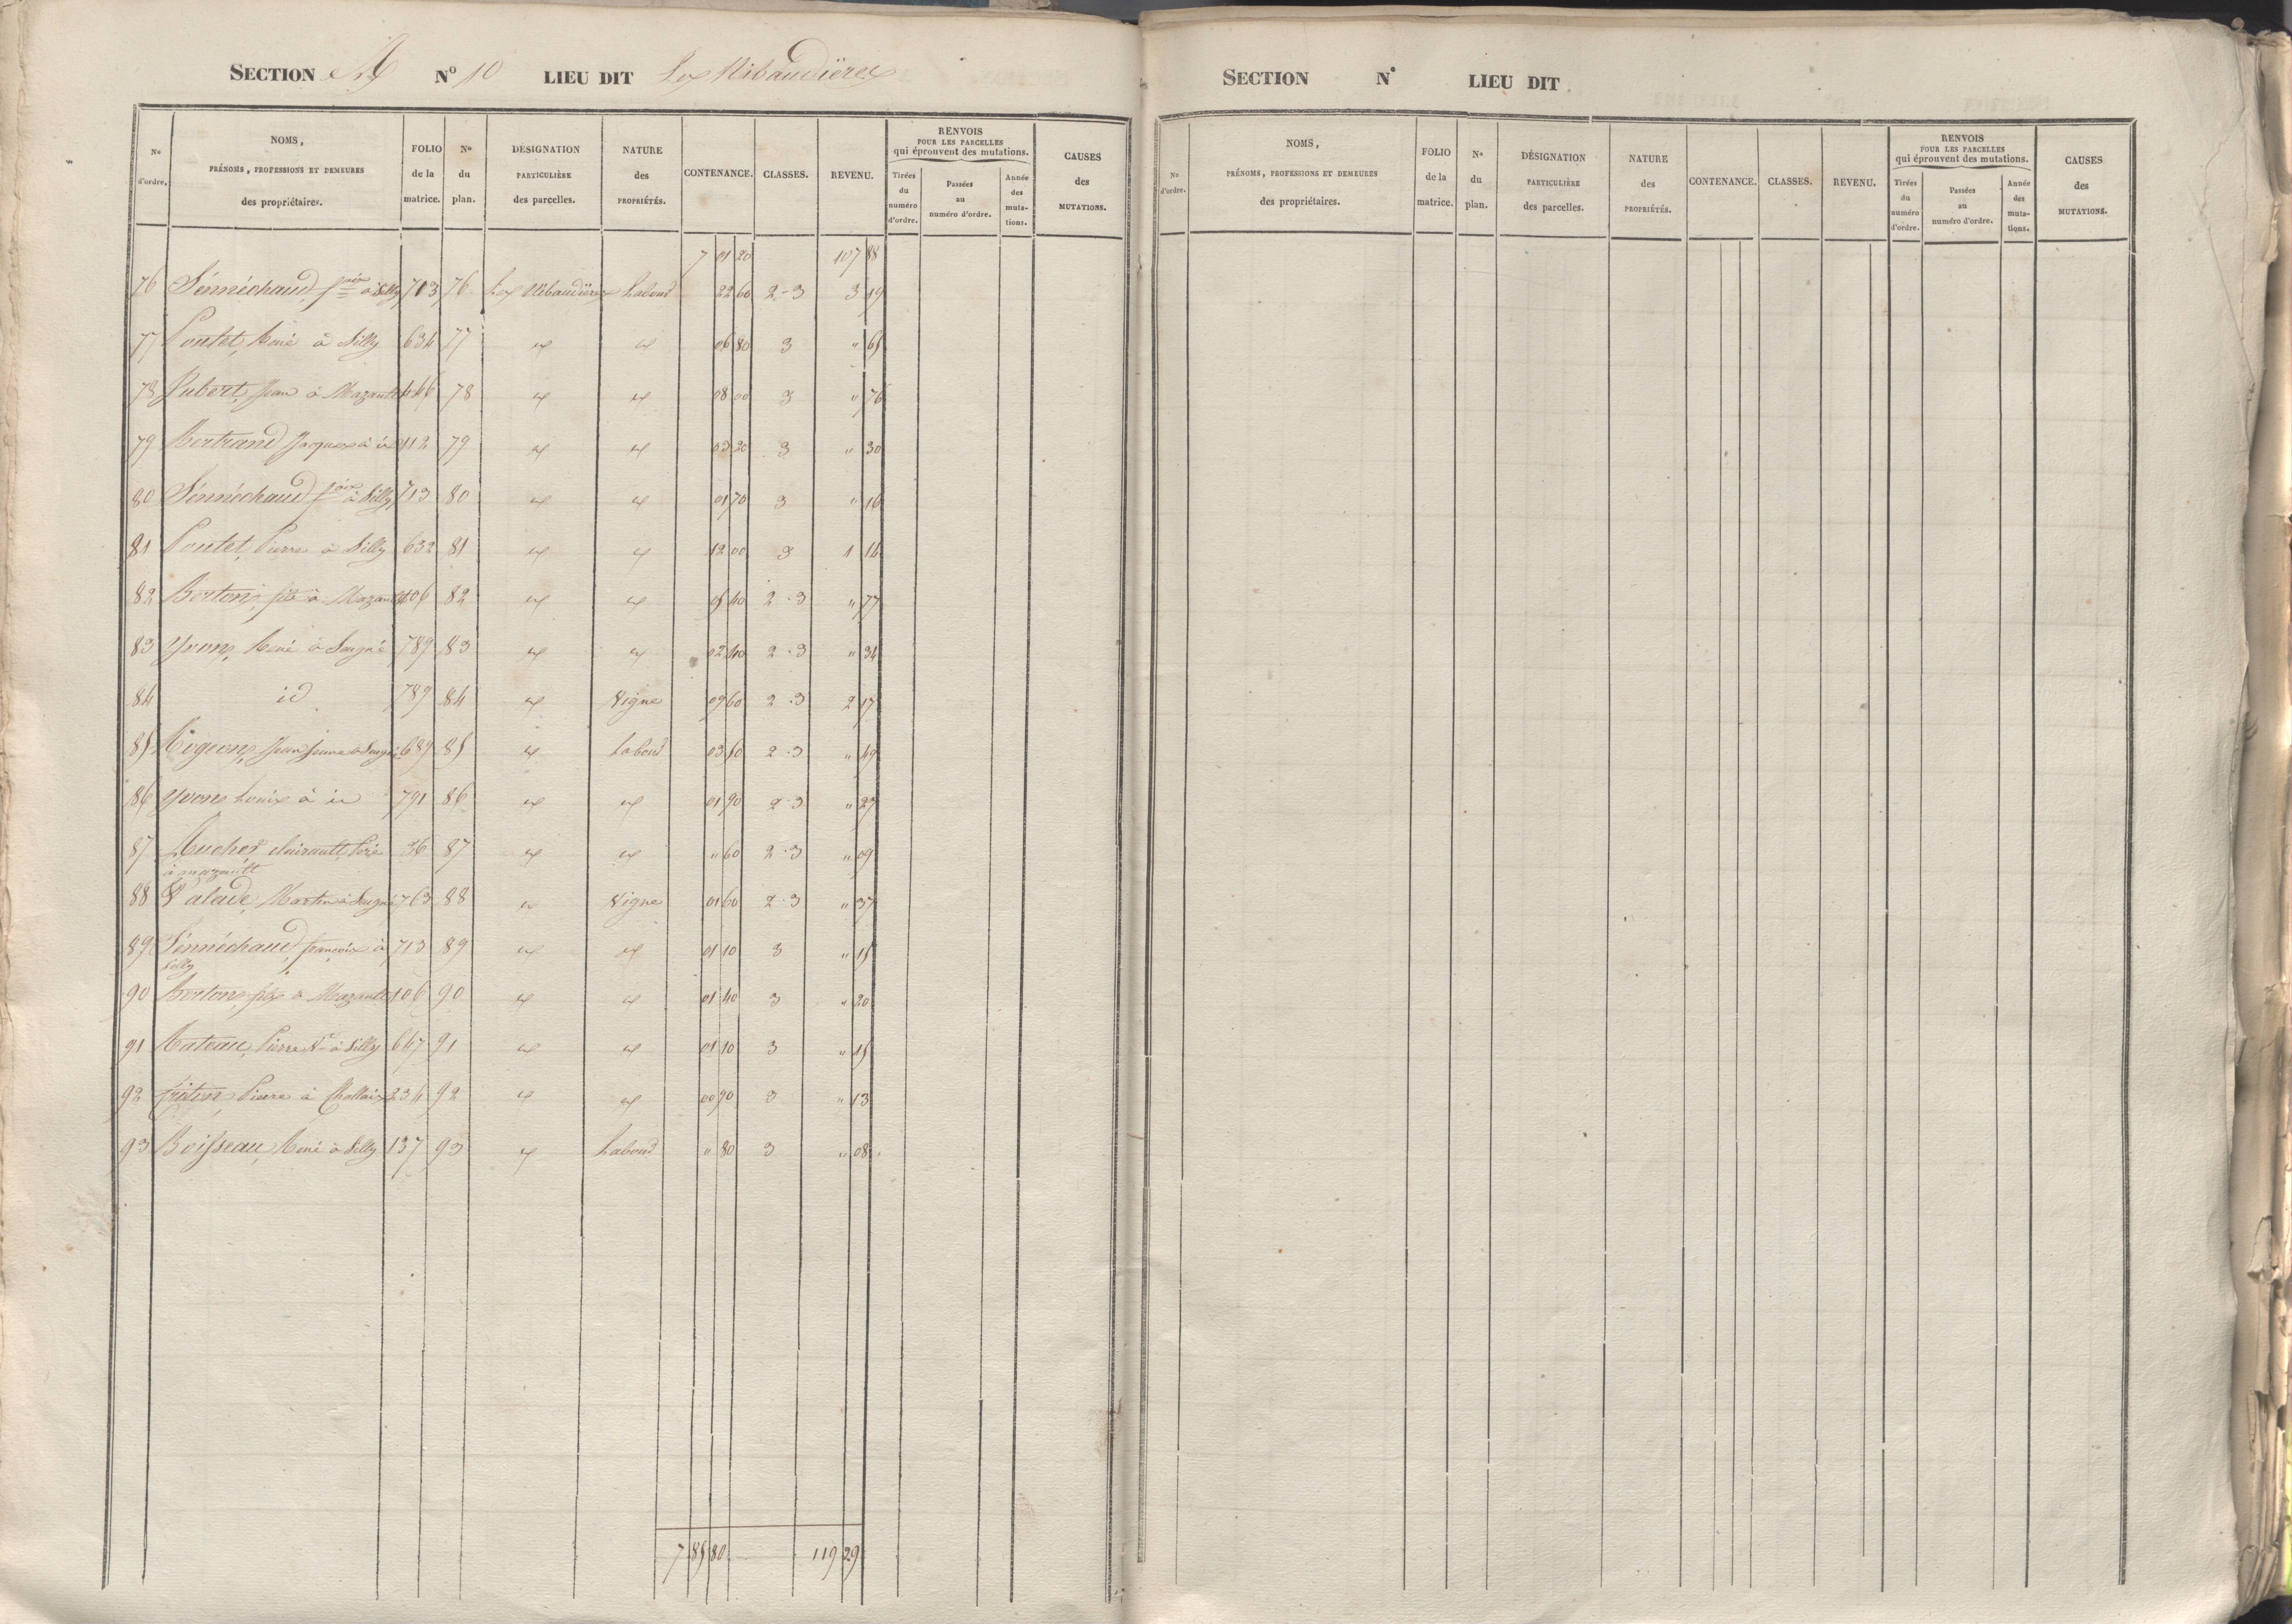 SECTION A N° 10 LIEU DIT Les Ribaudières
N° d'ordre. NOMS, PRÉNOMS, PROFESSIONS ET DEMEURES des propriétaires. FOLIO de la matrice. N° du plan. DÉSIGNATION PARTICULIÈRE des parcelles. NATURE des PROPRIÉTÉS. CONTENANCE. CLASSES. REVENU. RENVOIS POUR LES PARCELLES qui éprouvent des mutations. Tirées du numéro d'ordre. Passées au numéro d'ordre. Année des mutations. CAUSES des MUTATIONS.
7 01 20 107 88
76 Sennéchaud, fçois à Silly 713 76 Les Ribaudières Labour 22 60 2-3 3 19
77 Poutet, René à Silly 634 77 " " 06 80 3 " 65
78 Hubert, Jean à Mazault 446 78 " " 08 00 3 " 76
79 Bertrand Jacques à id 112 79 " " 03 20 3 " 30
80 Sennéchaud fçois à Silly 713 80 " " 01 70 3 " 16
81 Poutet, Pierre à Silly 632 81 " " 12 00 3 1 14
82 Berton, fils à Mazault 106 82 " " 05 40 2-3 " 77
83 Yvon, René à Saigné 789 83 " " 02 40 2-3 " 34
84 id 789 84 " Vigne 09 60 2-3 2 17
85 Rogeon, Jean jeune à Saigné 689 85 " Labour 03 50 2-3 " 49
86 Yvon Louis à id 791 86 " " 01 90 2-3 " 27
87 Auché, Clairault Piré 36 87 " " " 60 2-3 " 09
à mazault
88 Valade, Martin à Saigné 763 88 " Vigne 01 60 2-3 " 37
89 Sennéchaud, françois à 713 89 " " 01 10 3 " 15
Silly
90 Berton, fils à Mazault 106 90 " " 01 40 3 " 20
91 Rateau, Pierre à Silly 647 91 " " 01 10 3 " 15
92 Pierre à Challais 234 92 " " 00 90 3 " 13
93 Boisseau, René à Silly 137 93 " Labour " 80 3 " 08
7 85 80 119 29
SECTION N° LIEU DIT
N° d'ordre. NOMS, PRÉNOMS, PROFESSIONS ET DEMEURES des propriétaires. FOLIO de la matrice. N° du plan. DÉSIGNATION PARTICULIÈRE des parcelles. NATURE des PROPRIÉTÉS. CONTENANCE. CLASSES. REVENU. RENVOIS POUR LES PARCELLES qui éprouvent des mutations. Tirées du numéro d'ordre. Passées au numéro d'ordre. Année des mutations. CAUSES des MUTATIONS.